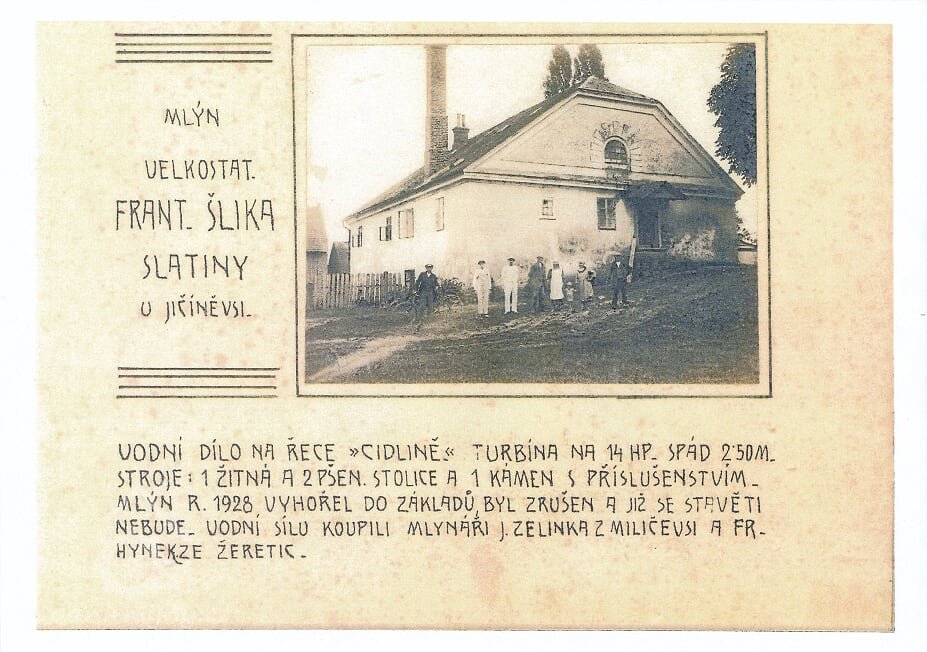 MLÝN
VELKOSTAT.
FRANT. ŠLIKA
SLATINY
U JIČÍNĚVSI.
VODNÍ DÍLO NA ŘECE »CIDLINĚ.« TURBÍNA NA 14 HP. SPÁD 2·50 M.
STROJE: 1 ŽITNÁ A 2 PŠEN. STOLICE A 1 KÁMEN S PŘÍSLUŠENSTVÍM.
MLÝN R. 1928, VYHOŘEL DO ZÁKLADŮ, BYL ZRUŠEN A JIŽ SE STAVĚTI
NEBUDE. VODNÍ SÍLU KOUPILI MLYNÁŘI J. ZELINKA Z MILIČEVSI A FR.
HYNEK ZE ŽERETIC.